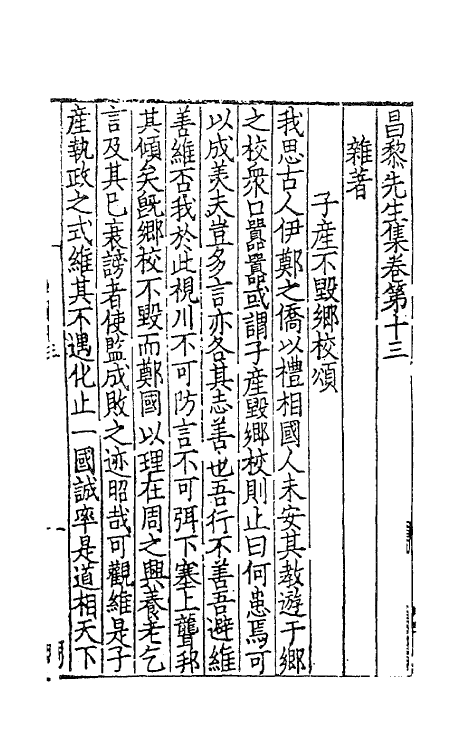 昌黎先生集卷第十三
雜著
子產不毀鄉校頌
我思古人伊鄭之僑以禮相國人未安其教遊于鄉
之校衆口嚻嚻或謂子產毀鄉校則止曰何患焉可
以成美夫豈多言亦各其志善也吾行不善吾避維
善維否我於此視川不可防言不可弭下塞上聾邦
其傾矣旣鄉校不毀而鄭國以理在周之興養老乞
言及其已衰謗者使監成敗之迹昭哉可觀維是子
產執政之式維其不遇化止一國誠率是道相天下